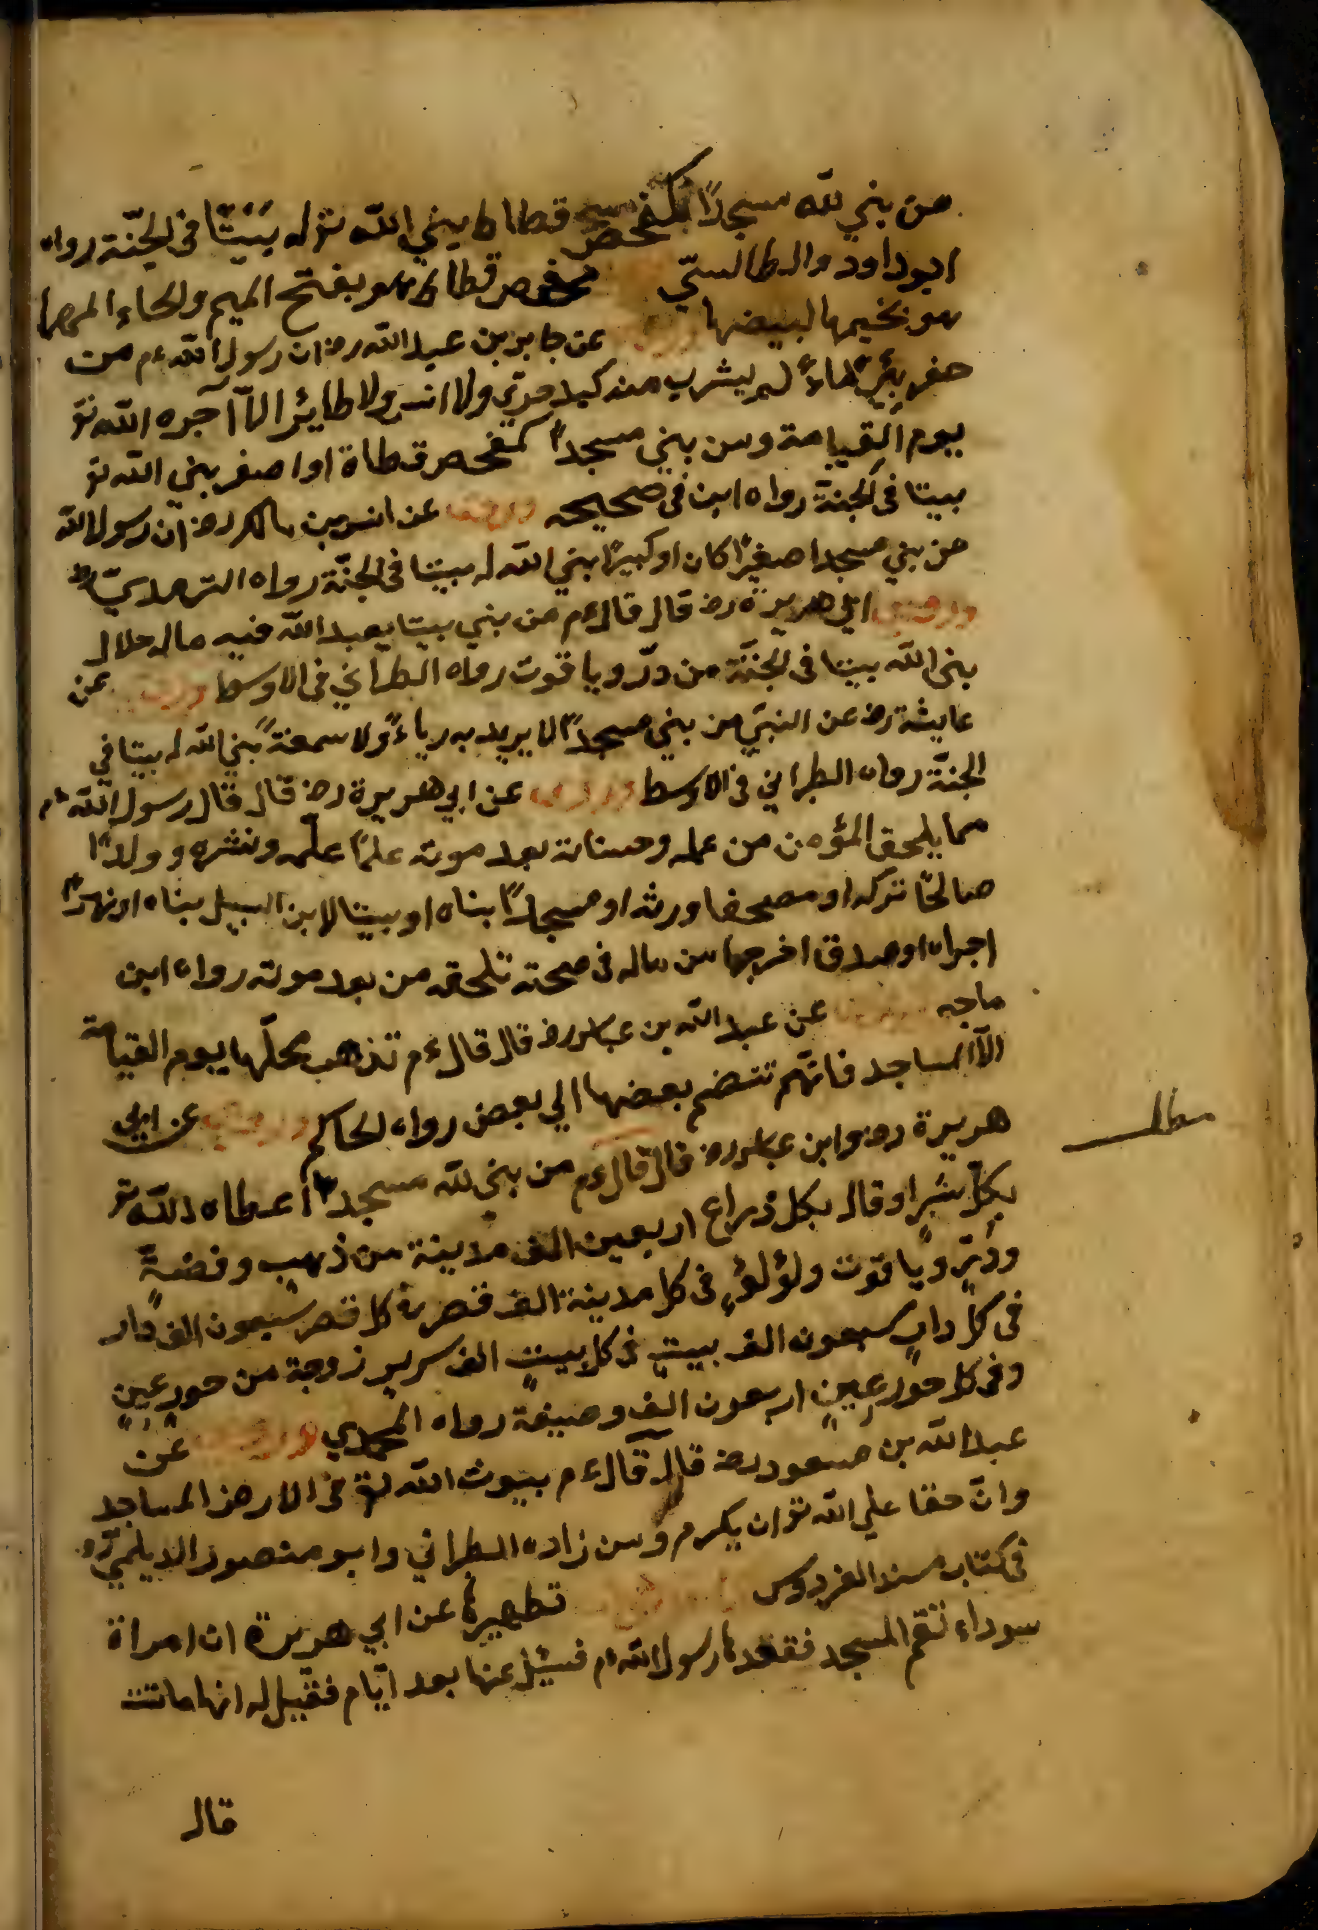 من بني لله مسجدًا كمفحص قطاط بيني الله تو له بَيْتًا في الجنّة رواه
ابو داود والطالسيّ مفحص قطاط هو بفتح الميم والحاء المهملا
هو بخيمها لبيضها عن جابر بن عبد الله رض ان رسول الله ءم من
حفر بِئْرَ ماءً لم يشرب منه كبد حرّي ولا انس ولا طايئر الاّ آجره الله تو
يوم القيامة ومن بني مسجدًا كمفحص قطاة او اصغر بني الله تو
بيتا في الجنة رواه ابن في صحيحه وروي عن انس بن مالك رض انّ رسول الله
من بني مسجدا صغيرًا كان او كبيرًا بني الله له بيتا في الجنّة رواه الترمديّ
وروي ابي هريرة رض قال قال ءم من بني بيتا يعبد الله فيه مال حلال
بني الله بيتا في الجنّة من درّ وياقوت رواه الطبراني في الاوسط وروي عن
عايشة رض عن النبيّ من بني مسجدًا لا يريد به رياءً ولا سمعةً بني الله له بيتا في
الجنّة رواه الطبراني في الاوسط وروي عن ابي هريرة رض قال قال رسول الله ءم
مما يلحق المؤمن من عمله وحسناته بعد موته علمًا علّمه ونشره وولدًا
صالحًا تركه او مصحفا ورثه او مسجدًا بناه او بيتا لابن السبيل بناه او نهرًا
اجراه او صدق اخرجها من ماله في صحته تلحقه من بعد موته رواه ابن
ماجه عن عبد الله بن عباس رض قال قال ءم تذهب محلّها يوم القيامة
الاّ المساجد فانّهم تنضم بعضها الي بعض رواه الحاكم وروي عن ابي
مطلب
هريرة رض وابن عباس رض قال قال ءم من بني لله مسجدًا اعطاه الله تو
بكلّ شبرٍ او قال بكل ذراع اربعين الف مدينة من ذهبٍ وفضةٍ
ودرٍّ وياقوت ولؤلؤٍ في كل مدينة الف قصر في كل قصر سبعون الف دار
في كل دارٍ سبعون الف بيتٍ في كل بيتٍ الف سرير زوجة من حور عينٍ
وفي كل حور عينٍ اربعون الف وصيفة رواه وروي عن
عبد الله بن مسعود رض قال قال ءم بيوت الله تو في الارض المساجد
وانّ حقا علي الله تو ان يكرم من زاده الطبراني وابو منصور الديلميّ
في كتاب مسند الفردوس تطهيرها عن ابي هريرة ان امراة
سوداء تقم المسجد ففقدها رسول الله ءم فسئل عنها بعد ايّام فقيل له انها ماتت
قال